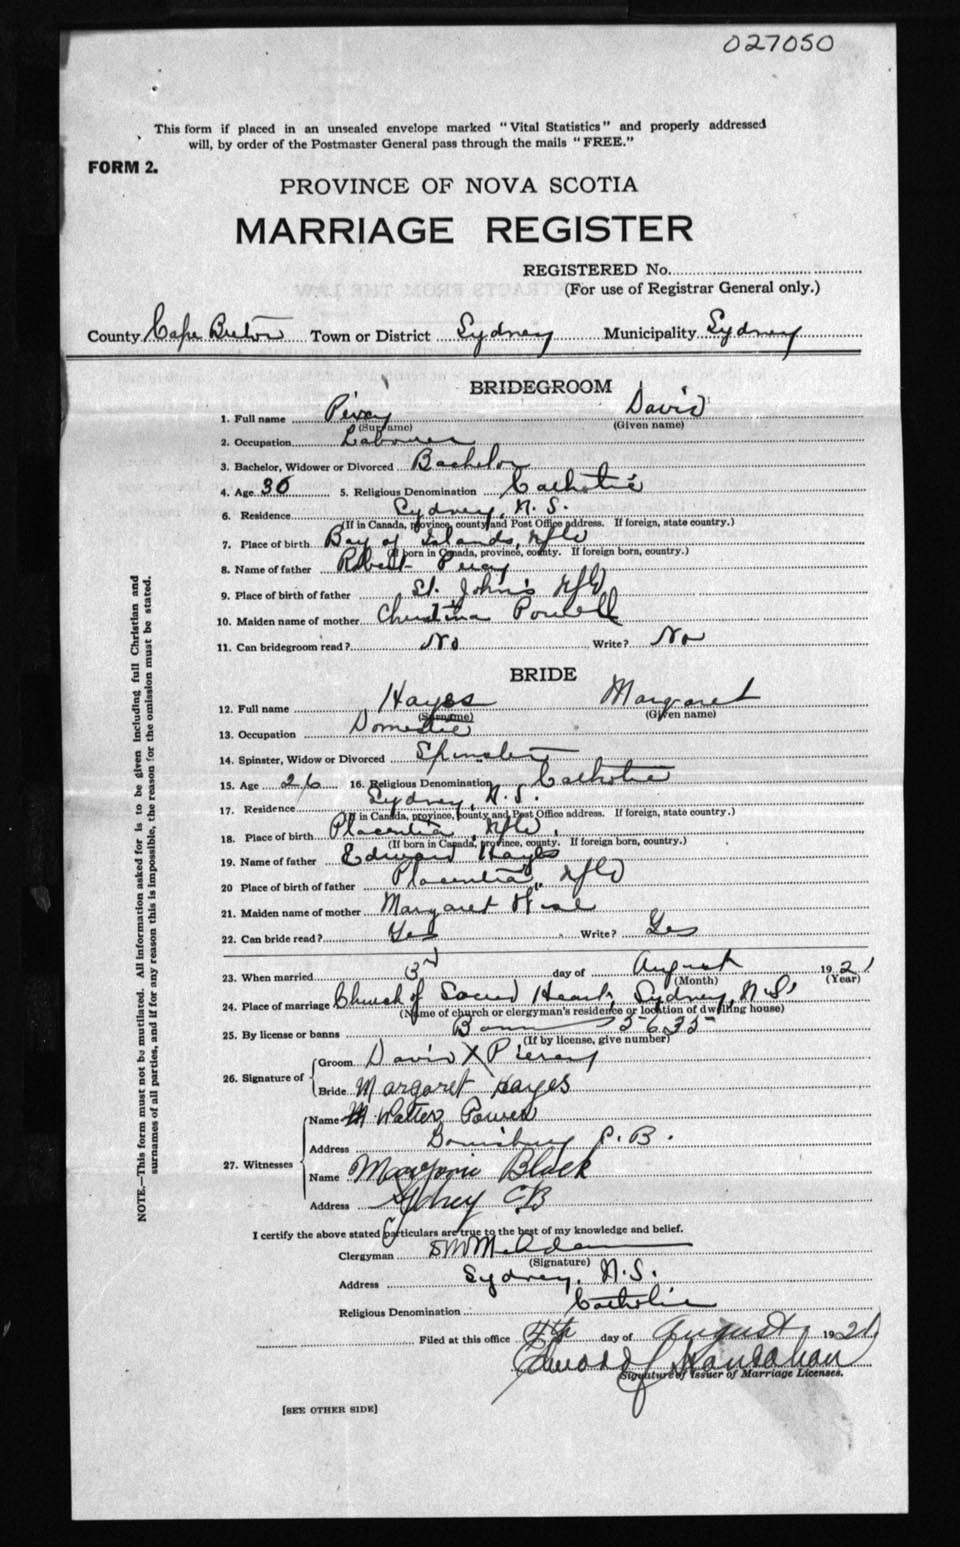 027050
This form if placed in an unsealed envelope marked "Vital Statistics" and properly addressed
will, by order of the Postmaster General pass through the mails "FREE."
FORM 2.
PROVINCE OF NOVA SCOTIA
MARRIAGE REGISTER
REGISTERED No.
(For use of Registrar General only.)
County Cape Breton Town or District Sydney Municipality Sydney
BRIDEGROOM
1. Full name David
(Surname) (Given name)
2. Occupation Labourer
3. Bachelor, Widower or Divorced Bachelor
4. Age 36 5. Religious Denomination Catholic
6. Residence Sydney, N.S.
(If in Canada, province, county and Post Office address. If foreign, state country.)
7. Place of birth Bay of Islands, Nfld
(If born in Canada, province, county. If foreign born, country.)
8. Name of father Robert
9. Place of birth of father St. John's Nfld
10. Maiden name of mother Christina Powell
11. Can bridegroom read? No Write? No
BRIDE
12. Full name Hayes Margaret
(Surname) (Given name)
13. Occupation Domestic
14. Spinster, Widow or Divorced Spinster
15. Age 26 16. Religious Denomination Catholic
17. Residence Sydney, N.S.
(If in Canada, province, county and Post Office address. If foreign, state country.)
18. Place of birth Placentia, Nfld.
(If born in Canada, province, county. If foreign born, country.)
19. Name of father Edward Hayes
20 Place of birth of father Placentia, Nfld
21. Maiden name of mother Margaret
22. Can bride read? Yes Write? Yes
23. When married 3rd day of August 1921
(Month) (Year)
24. Place of marriage Church of Sacred Heart, Sydney, N.S.
(Name of church or clergyman's residence or location of dwelling house)
25. By license or banns Banns 5635
(If by license, give number)
26. Signature of
Groom David X
Bride Margaret Hayes
27. Witnesses
Name Walter
Address Louisburg C.B.
Name Marjorie Black
Address Sydney CB
I certify the above stated particulars are true to the best of my knowledge and belief.
Clergyman
(Signature)
Address Sydney, N.S.
Religious Denomination Catholic
Filed at this office 4th day of August 1921
Signature of Issuer of Marriage Licenses.
[SEE OTHER SIDE]
NOTE.—This form must not be mutilated. All information asked for is to be given including full Christian and
surnames of all parties, and if for any reason this is impossible, the reason for the omission must be stated.